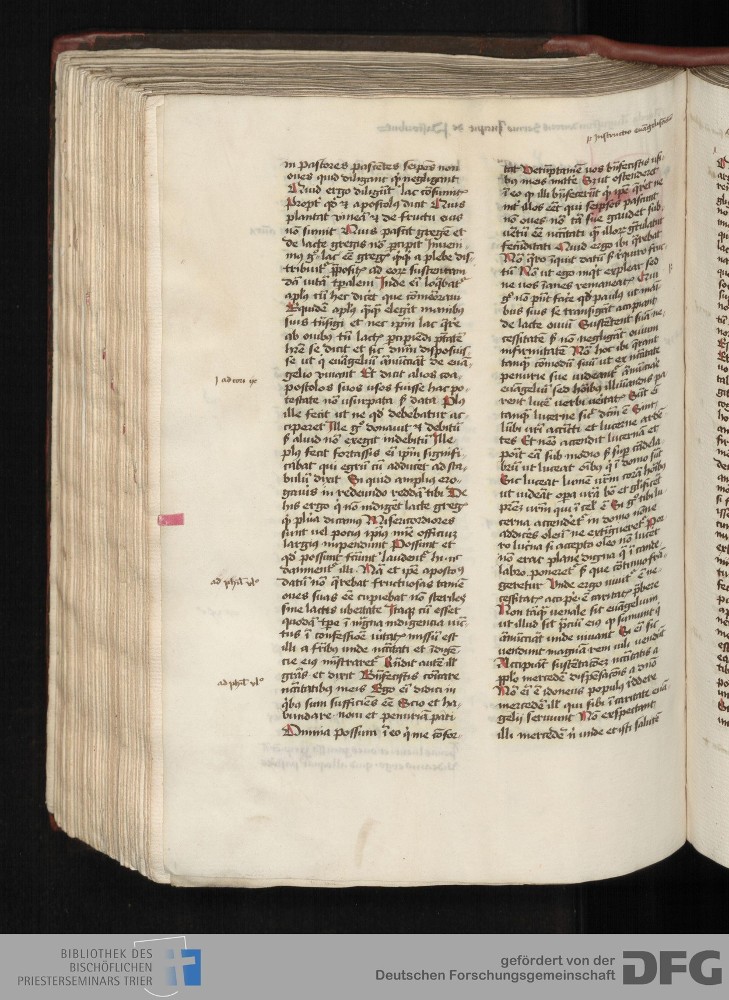 in pastores pascentes seipsos non
oves quid diligant qui negligant
Quid ergo diligunt lac consumunt
Propter quod et apostolus dicit Quis
plantat vineam et de fructu eius
non sumit Quis pascit gregem et
de lacte gregis non percipit Inveni
mus ergo lac esse gregis quicquid a plebe dis
tribuitur prepositis ad eorum sustentan
dam vitam temporalem Inde enim loquebatur
apostolus cum hec diceret que commemoravi
Equidem apostolus quamquam elegerit manibus
suis transigi et nec ipsum lac quereret
ab ovibus tamen lactis percipiendi potestatem
habere se dicit et sic dominum disposuisse
ut qui evangelium annunciant de evan
gelio vivant Et dicit alios coa
postolos suos usos fuisse hac po
testate non usurpata sed data Plus
ille fecit ut ne quod debebatur ac
ciperet Ille ergo donavit et debitum
sed aliud non exegit indebitum Ille
plus fecit fortassis enim ipsum signifi
cabat qui egrum cum adduceret ad sta
bulum dixit Si quid amplius ero
gaveris in redeundo reddam tibi De
his ergo qui non indigent lacte gregis
quid plura dicamus Misericordiores
sunt vel potius ipsius misericordie officium
largius impendunt Possunt et
quod possunt faciunt laudentur hii nec
dampnentur illi Nam et ipse apostolus
datum non querebat fructuosas tamen
oves suas esse cupiebat non steriles
sine lactis ubertate Itaque cum esset
quodam tempore in magna indigentia vinc
tus in confessione veritatis missum est
illi a fratribus unde necessitati et indigen
cie eius ministraretur Respondit autem illis
gratias et dixit Benefecistis communicare
necessitatibus meis Ego enim didici in
quibus sum sufficiens esse Scio et ha
bundare novi et penuriam pati
Omnia possum in eo qui me confor
p Instructio evangelisantis
tat Verumptamen vos benefecistis usi
bus meis mittere Sed ut ostenderet
in eo quod illi benefecerunt quid ipse quereret ne
inter illos esset qui seipsos pascunt
non oves non tam sue gaudet sub
ventum esse necessitati quam illorum gratulatur
fecunditati Quid ergo ibi querebat
Non quero inquit datum sed requiro fruc
tum Non ut ego inquit explear sed
ne vos inanes remaneatis Qui
ergo non possunt facere quod paulus ut mani
bus suis se transigant accipiant
de lacte ovium Sustentent suam ne
cessitatem sed non negligant ovium
infirmitatem Non hoc sibi querant
tanquam comodum suum ut ex necessitate
penurie sue videantur annunciare
evangelium sed hominibus illuminandis pa
rent lucem verbi veritatis Sunt enim
tanquam lucerne sicut dictum est Sint
lumbi vestri accincti et lucerne arden
tes Et nemo accendit lucernam et
ponit eam sub modio sed super candela
brum ut luceat omnibus qui in domo sunt
Sic luceat lumen vestrum coram hominibus
ut videant opera vestra bona et glorificent
patrem vestrum qui in celis est Si ergo tibi lu
cerna accenderetur in domo nonne
adderes oleum ne extingueretur Por
ro lucerna si accepto oleo non luceret
non erat plane digna que in cande
labro poneretur sed que continuo fran
geretur Unde ergo vivitur est ne
cessitatis accipere est caritatis prebere
Non tanquam venale sit evangelium
ut illud sit precium eius quod sumunt qui
annunciant unde vivant Si enim sic
vendunt magnam rem vili vendunt
Accipiant sustentationem necessitatis a
populo mercedem dispensationis a domino
Non enim est idoneus populus reddere
mercedem illis qui sibi in caritate evan
gelii serviunt Non exspectant
illi mercedem nisi unde et isti salutem
I ad cori ix
ad phil. ulo
ad phil ulo
BIBLIOTHEK DES
BISCHÖFLICHEN
PRIESTERSEMINARS TRIER
gefördert von der
Deutschen Forschungsgemeinschaft
DFG